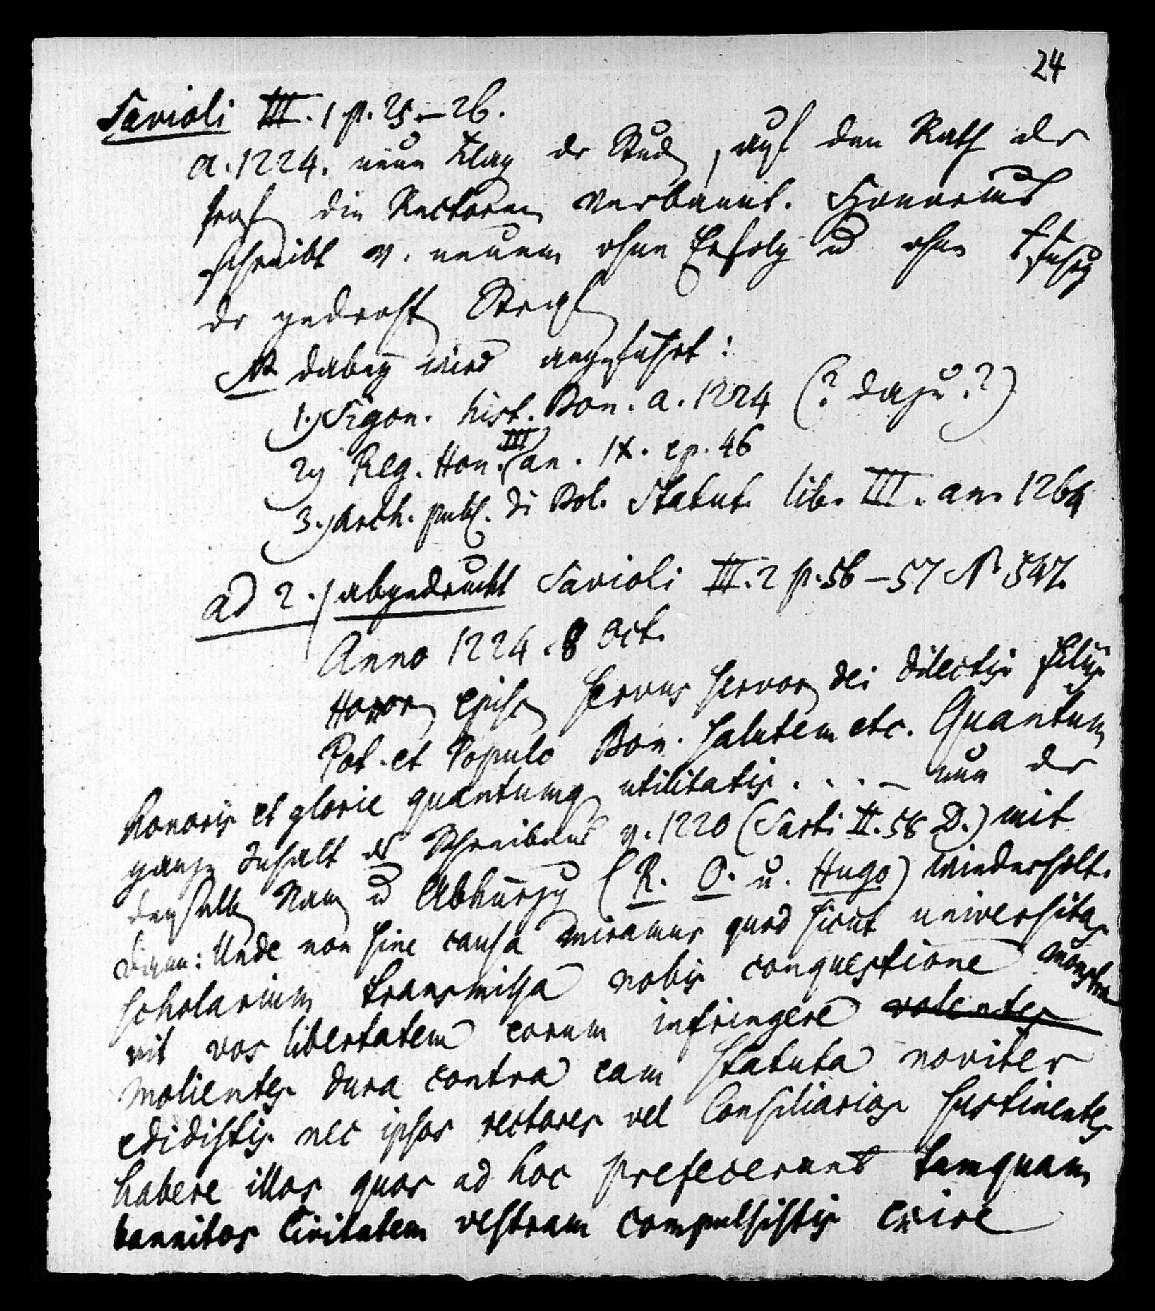 24
Savioli III. 1 p. 25–26.
a. 1224. neue Klag der Stud, auf den Rath der
Prof die Rectoren verbannt. Honorius
schreibt v. neuem ohne Erfolg u ohne
der gedroht Straf
NB dabey wird angeführt:
1.) Sigon. hist. Bon. a. 1224 (? dazu?)
2) Reg. Hon. III an. IX. ep. 46
3.) Arch. publ. di Bol. Statut. lib. III. an. 1264
ad 2.) abgedruckt Savioli III. 2 p. 56–57 N° 547.
Anno 1224. 8 Oct.
Honor episc servus servor dei dilectis filiis
Pot. et Populo Bon. salutem etc. Quantum
honoris et glorie quantumq utilitatis . . . – nun der
ganze Inhalt des Schreibens v. 1220 (Sarti II. 58 D.) mit
denselb Nam u Abkürzg (R. O. u. Hugo) wiederholt.
dann: Unde non sine causa miramur quod sicut universitas
scholarium transmissa nobis conquestione monstra
vit vos libertatem eorum infringere volentes
molientes dura contra eam statuta noviter
edidistis nec ipsos rectores vel Consiliarios sustinentes
habere illos quos ad hoc prefecerunt tamquam
bannitos Civitatem vestram compulsistis exire